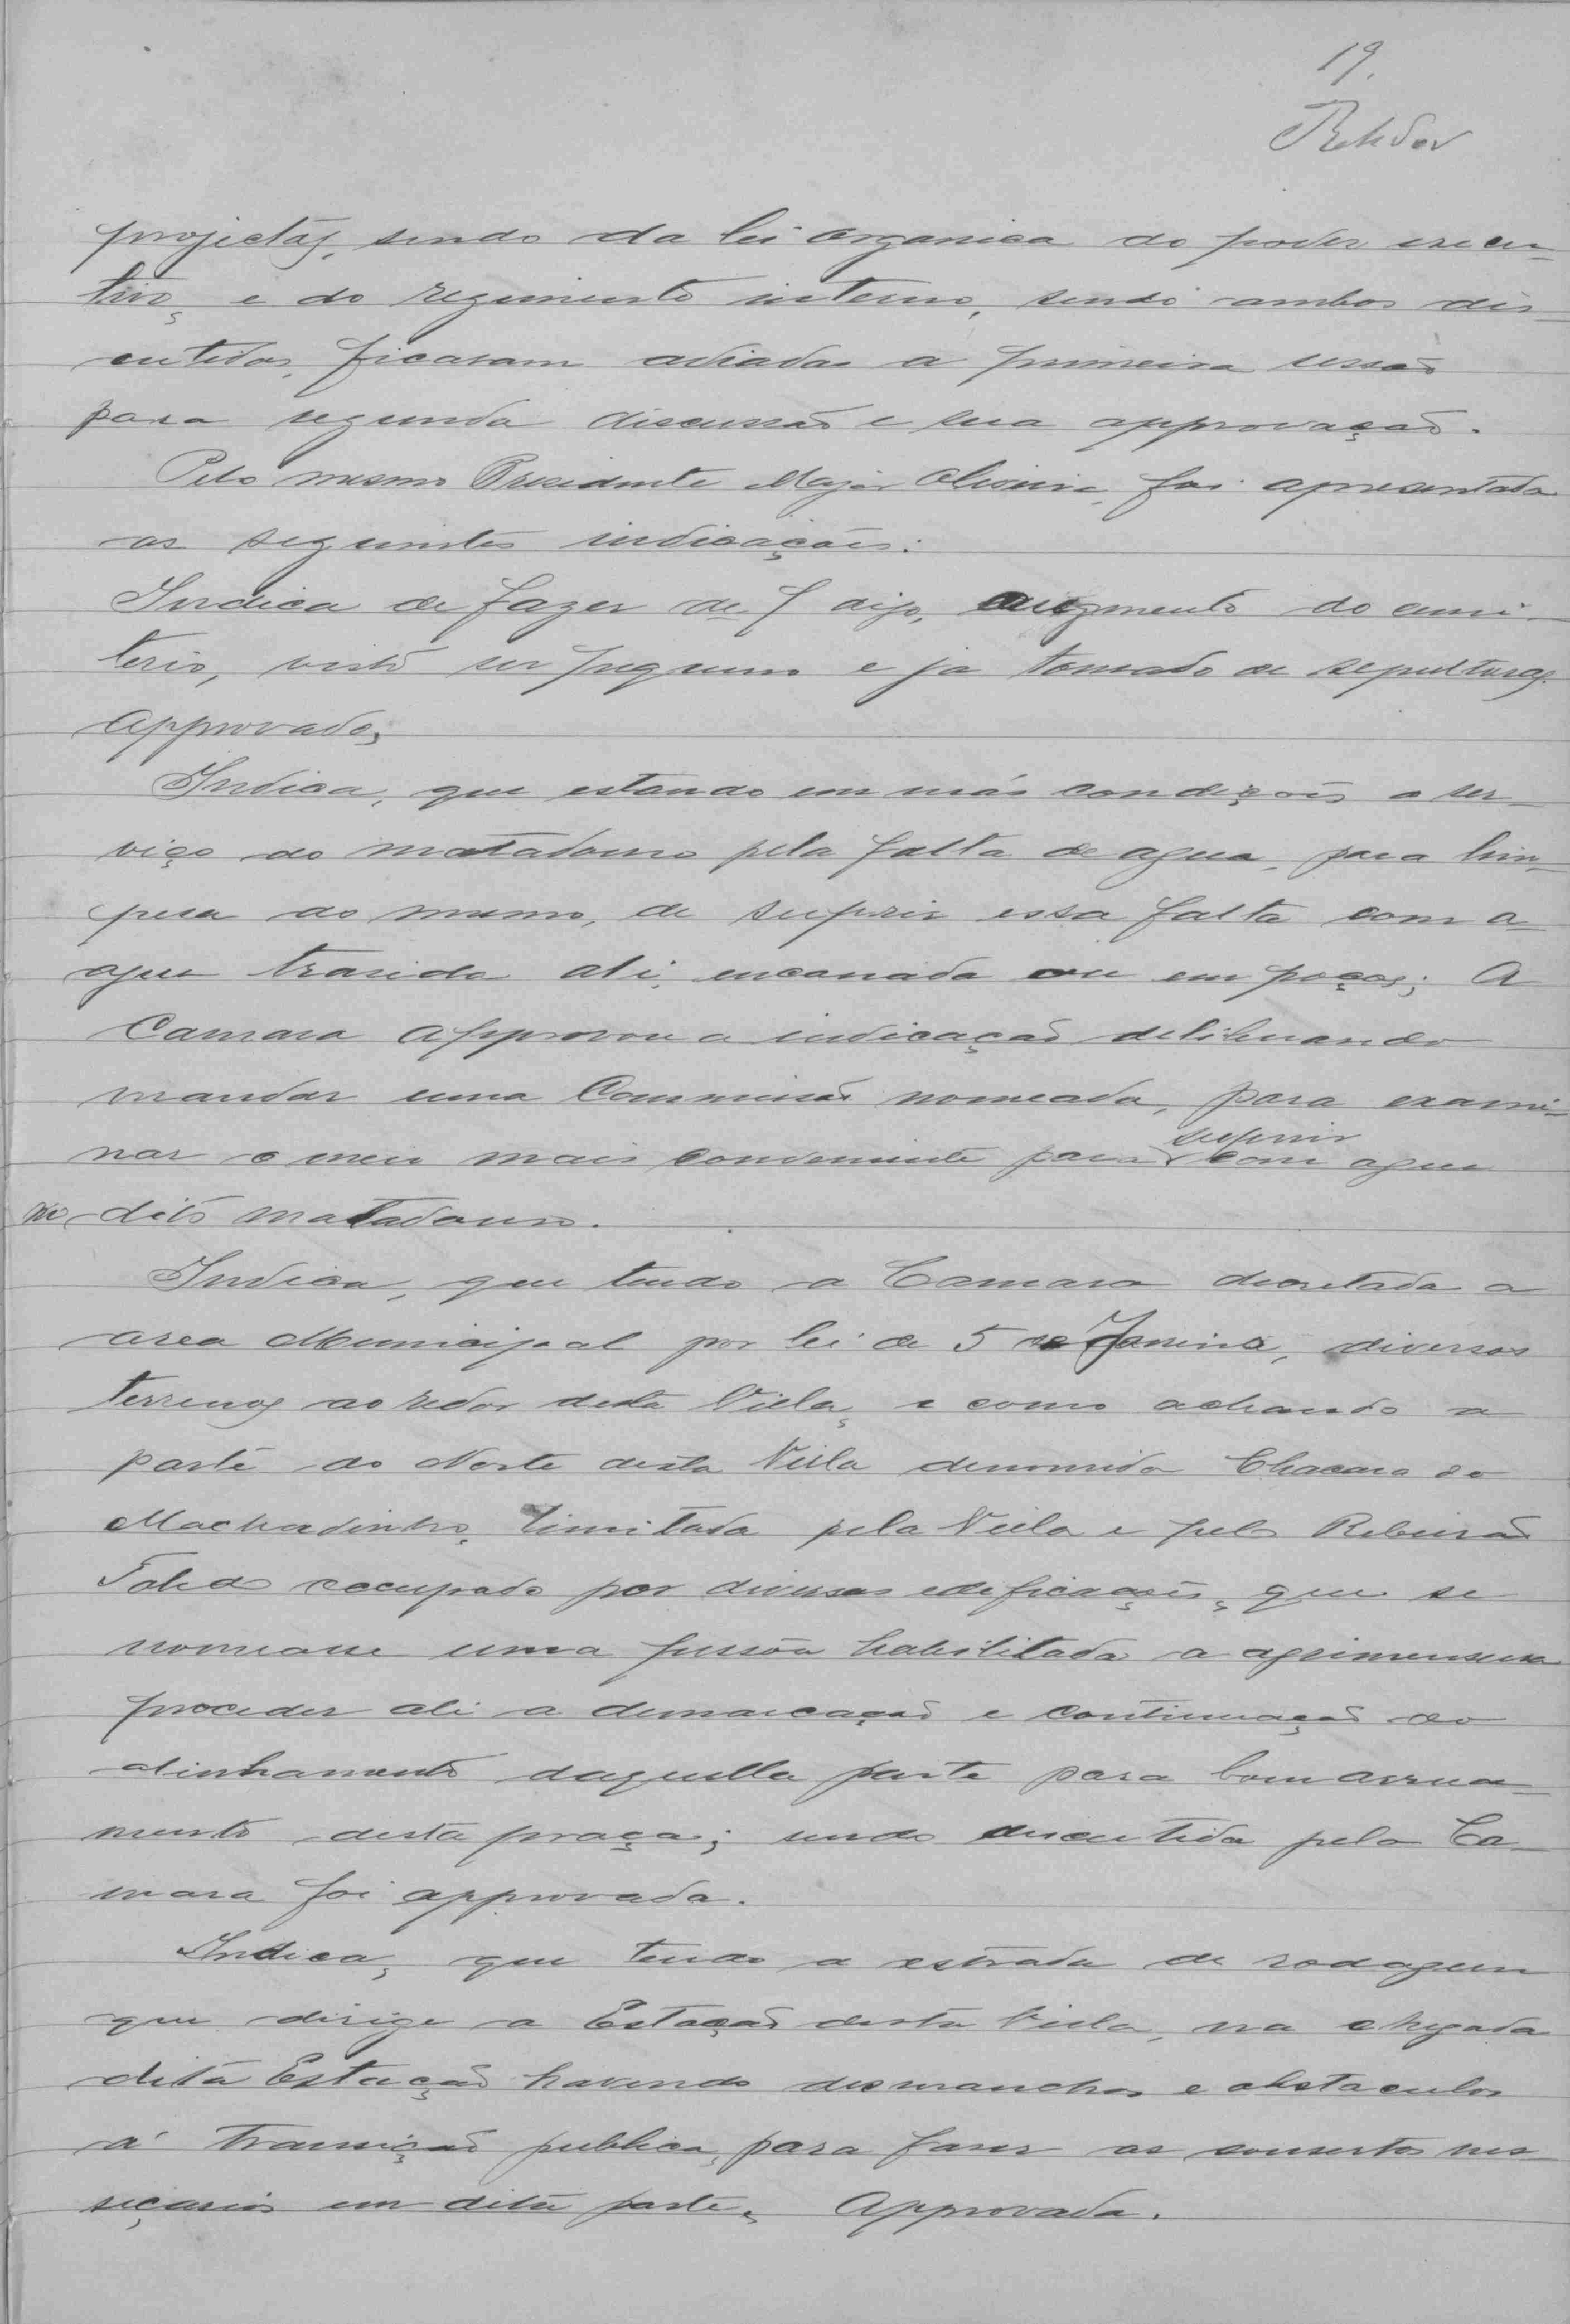 19.
Rehder
projectos, sendo da lei organica do poder execu-
tivo, e do regimento interno, sendo ambos dis-
cutidos, ficaram adiados a primeira sessão
para segunda discussão e sua approvação.
Pelo mesmo Presidente Major Oliveira, foi apresentada
as seguintes indicações:
Indica de fazer de f digo, augmento do cemi-
terio, visto ser pequeno e ja tomado de sepulturas.
Approvado;
Indica, que estando em más condições o ser-
viço do matadouro pela falta de agua, para lim-
pesa do mesmo, de suprir essa falta com a
agua trasida ali, encanada ou em poços; A
Camara approvou a indicação deliberando
mandar uma Commissão nomeada, para exami-
nar o meio mais conveniente para suprir com agua
no dito matadouro.
Indica, que tendo a Camara decretada a
area Municipal por lei de 5 de Janeiro, diversos
terrenos ao redor desta Villa, e como achando a
parte do Norte desta Villa denomida Chacara do
Machadinho, limitada pela Villa e pelo Ribeirão
Toledo occupado por diversas edificações, que se
nomeasse uma pessôa habilitada a agrimensura
proceder ali a demarcação e continuação do
alinhamento daquella parte para bom arrua-
mento desta praça; sendo discutida pela Ca-
mara foi approvada.
Indica, que tendo a estrada de rodagem
que dirige a Estação desta Villa, na chegada
dita Estação havendo desmanchos e obstaculos
á transição publica, para faser os consertos nes-
seçarios em dita parte. Approvada.